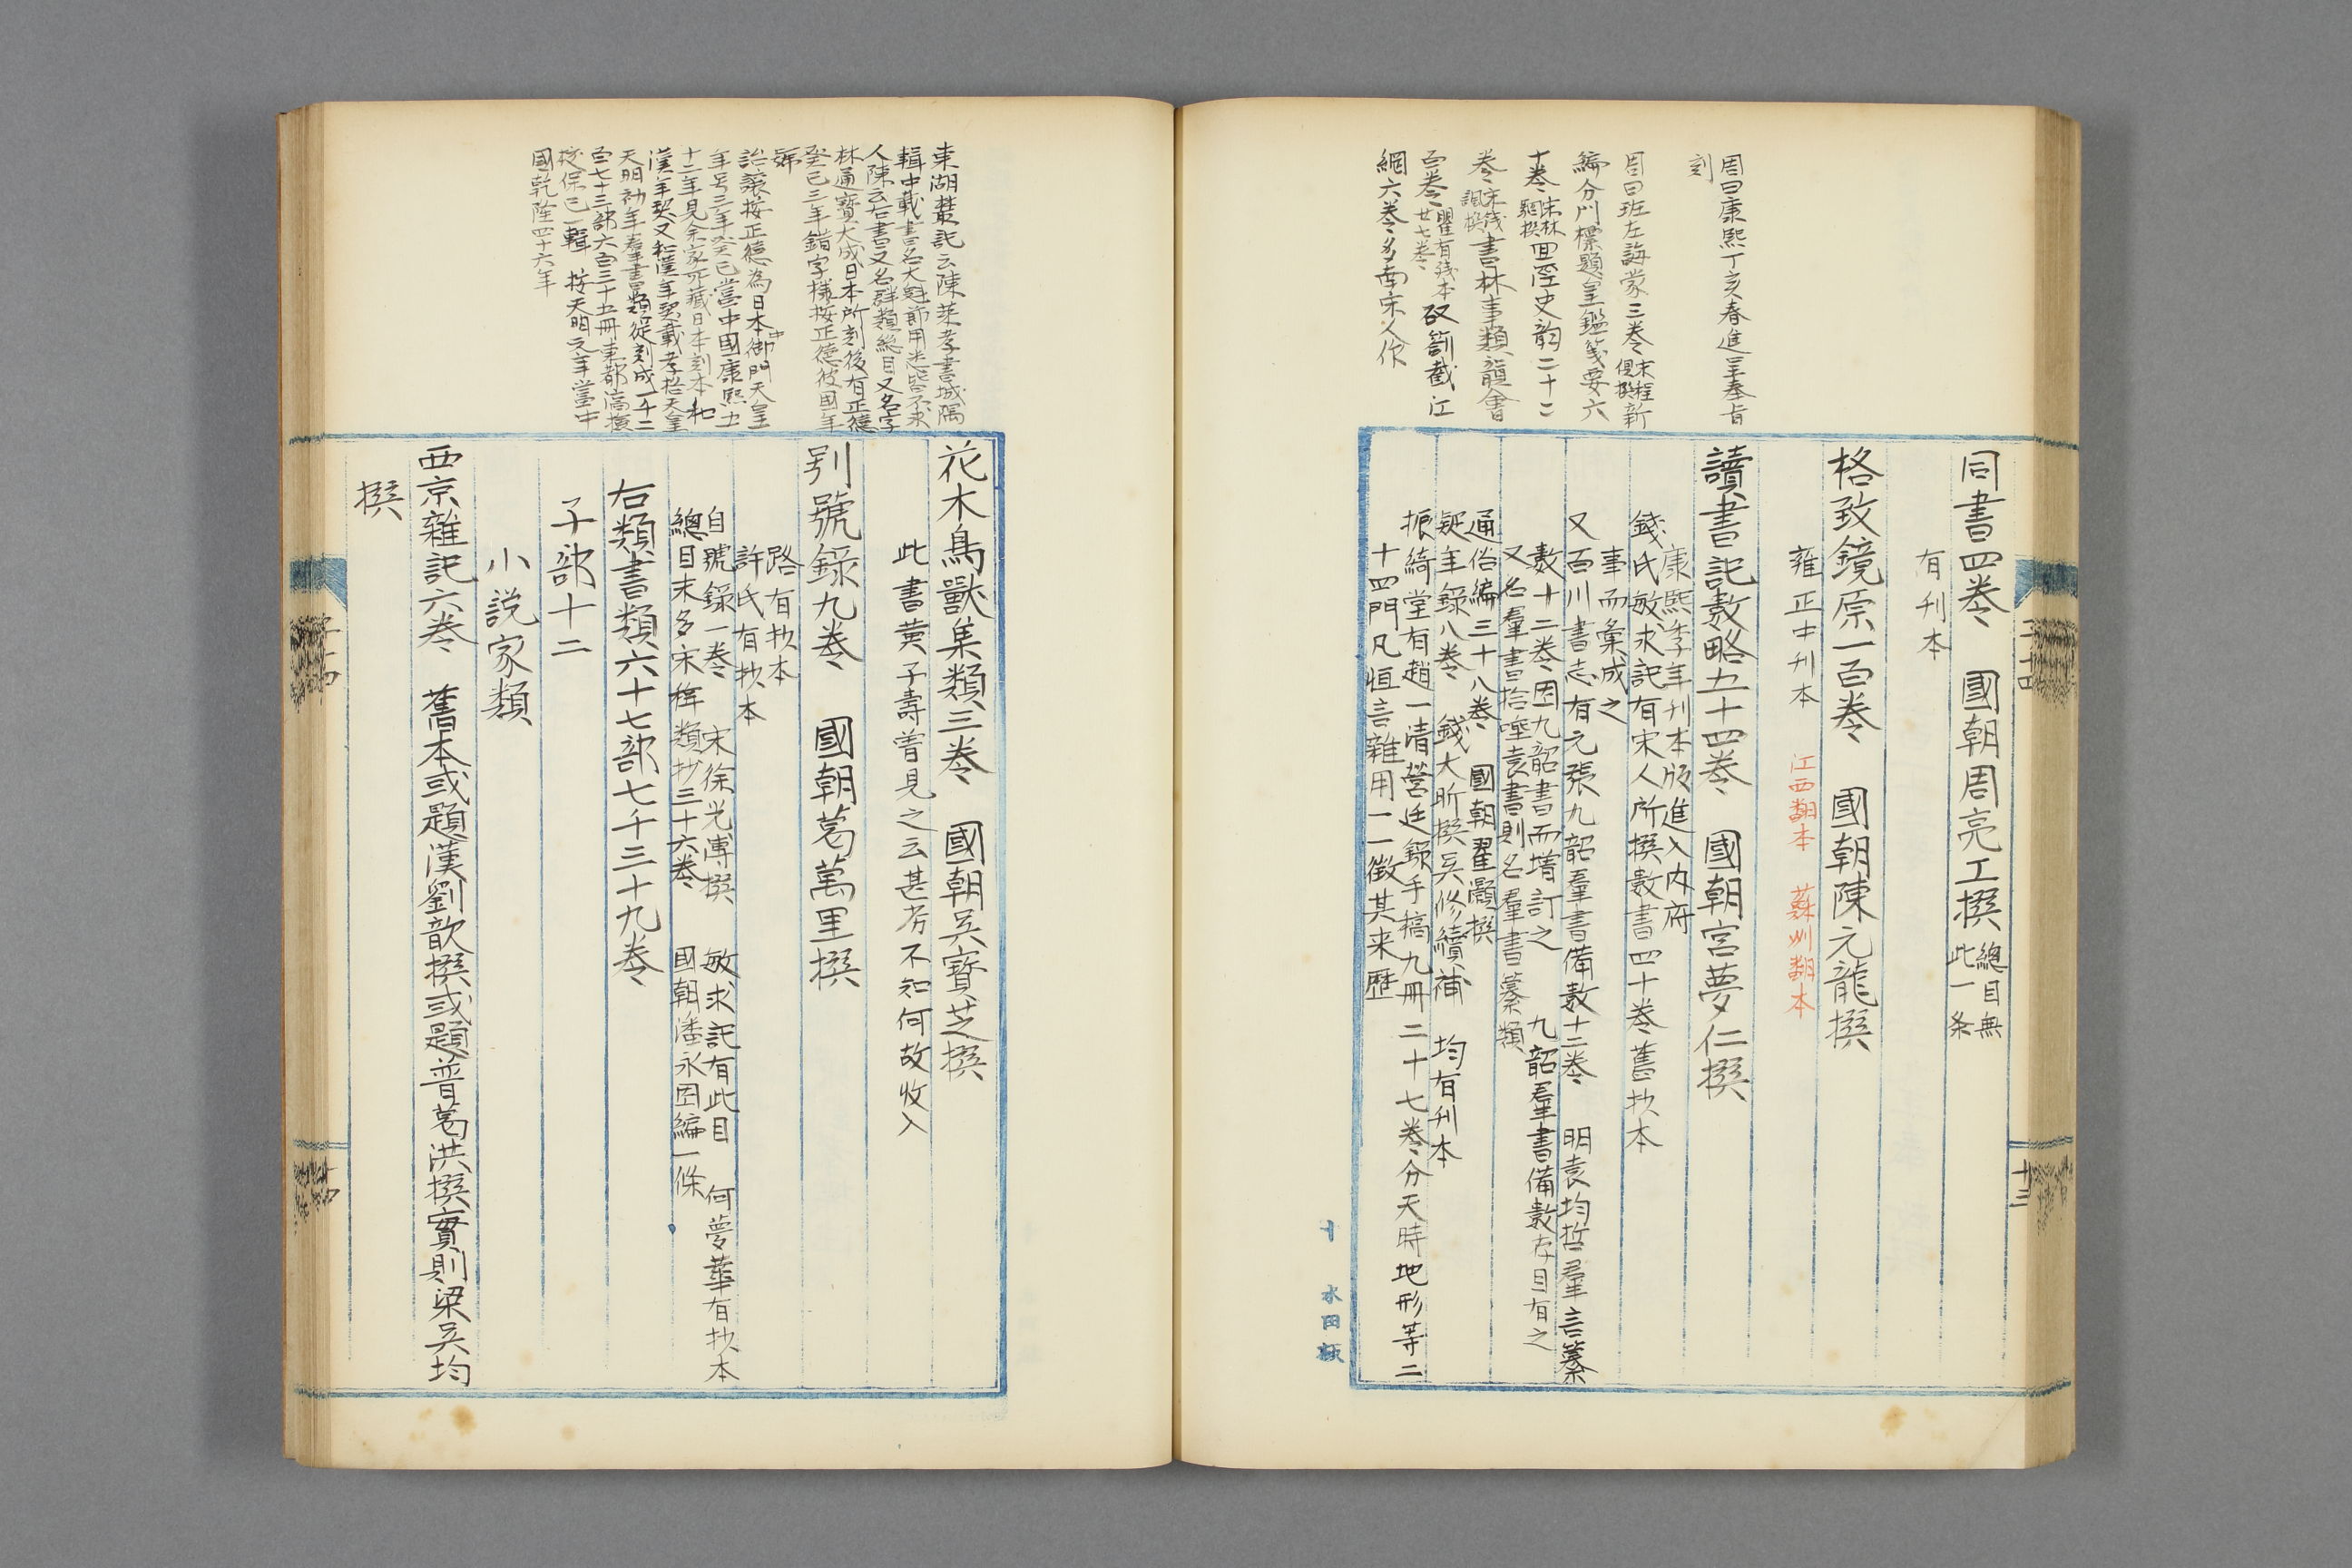 周曰康熙丁亥春進呈奉旨
刻
周曰班左誨蒙三卷宋程俱撰新
編分門標題皇鑑箋要六
十卷宋林駉撰回溪史韵二十二
卷宋錢諷撰書林事類韻會
百卷瞿有殘本廿七卷敌𠜇截江
網六卷多南宋人作
同書四卷 國朝周亮工撰總目無此一条
有刊本
格致鏡原一百卷 國朝陳元龍撰
雍正中刊本 江西翻本 蘇州翻本
讀書記數略五十四卷 國朝宮夢仁撰
康熙季年刊本版進入内府
錢氏敏求記有宋人所撰數書四十卷舊抄本
事而彙成之
又百川書志有元張九韶羣書備數十二卷 明袁均哲羣言纂
數十二卷因九韶書而增訂之 九韶羣書備數存目有之
又名羣書拾唾袁書則名羣書纂類
通俗編三十八卷 國朝翟灝撰
疑年錄八卷 錢大昕撰吳修續補 均有刊本
振綺堂有趙一清營迋錄手稿九冊二十七卷分天時地形等二
十四門凡恒言雜用一一徵其来歷
十 水田板
十三
東湖叢記云陳萊孝書城隅
輯中載書名大魁節用悉皆不求
人陳云右書又名群類總目又名字
林通寶大成日本所刻後有正德
癸已三年錯字樣按正德彼國年
號
詒讓按正德為日本中御門天皇
年号三年癸已當中國康熙五
十二年見余家所藏日本刻本和
漢年契又和漢年契載孝格天皇
天明初年羣書類從刻成一千二
百七十三部六百三十五冊東都高檢
校保已一輯 按天明元年當中
國乾隆四十六年
花木鳥獸集類三卷 國朝吳寶芝撰
此書黄子壽曽見之云甚劣不知何故收入
別號錄九卷 國朝葛萬里撰
路有抄本
許氏有抄本
自號錄一卷 宋徐光溥撰 敏求記有此目 何夢華有抄本
總目末多宋稗類抄三十六卷 國朝潘永因編一條
右類書類六十七部七千三十九卷
子部十二
小說家類
西京雜記六卷 舊本或題漢劉歆撰或題晉葛洪撰實則梁吳均
撰